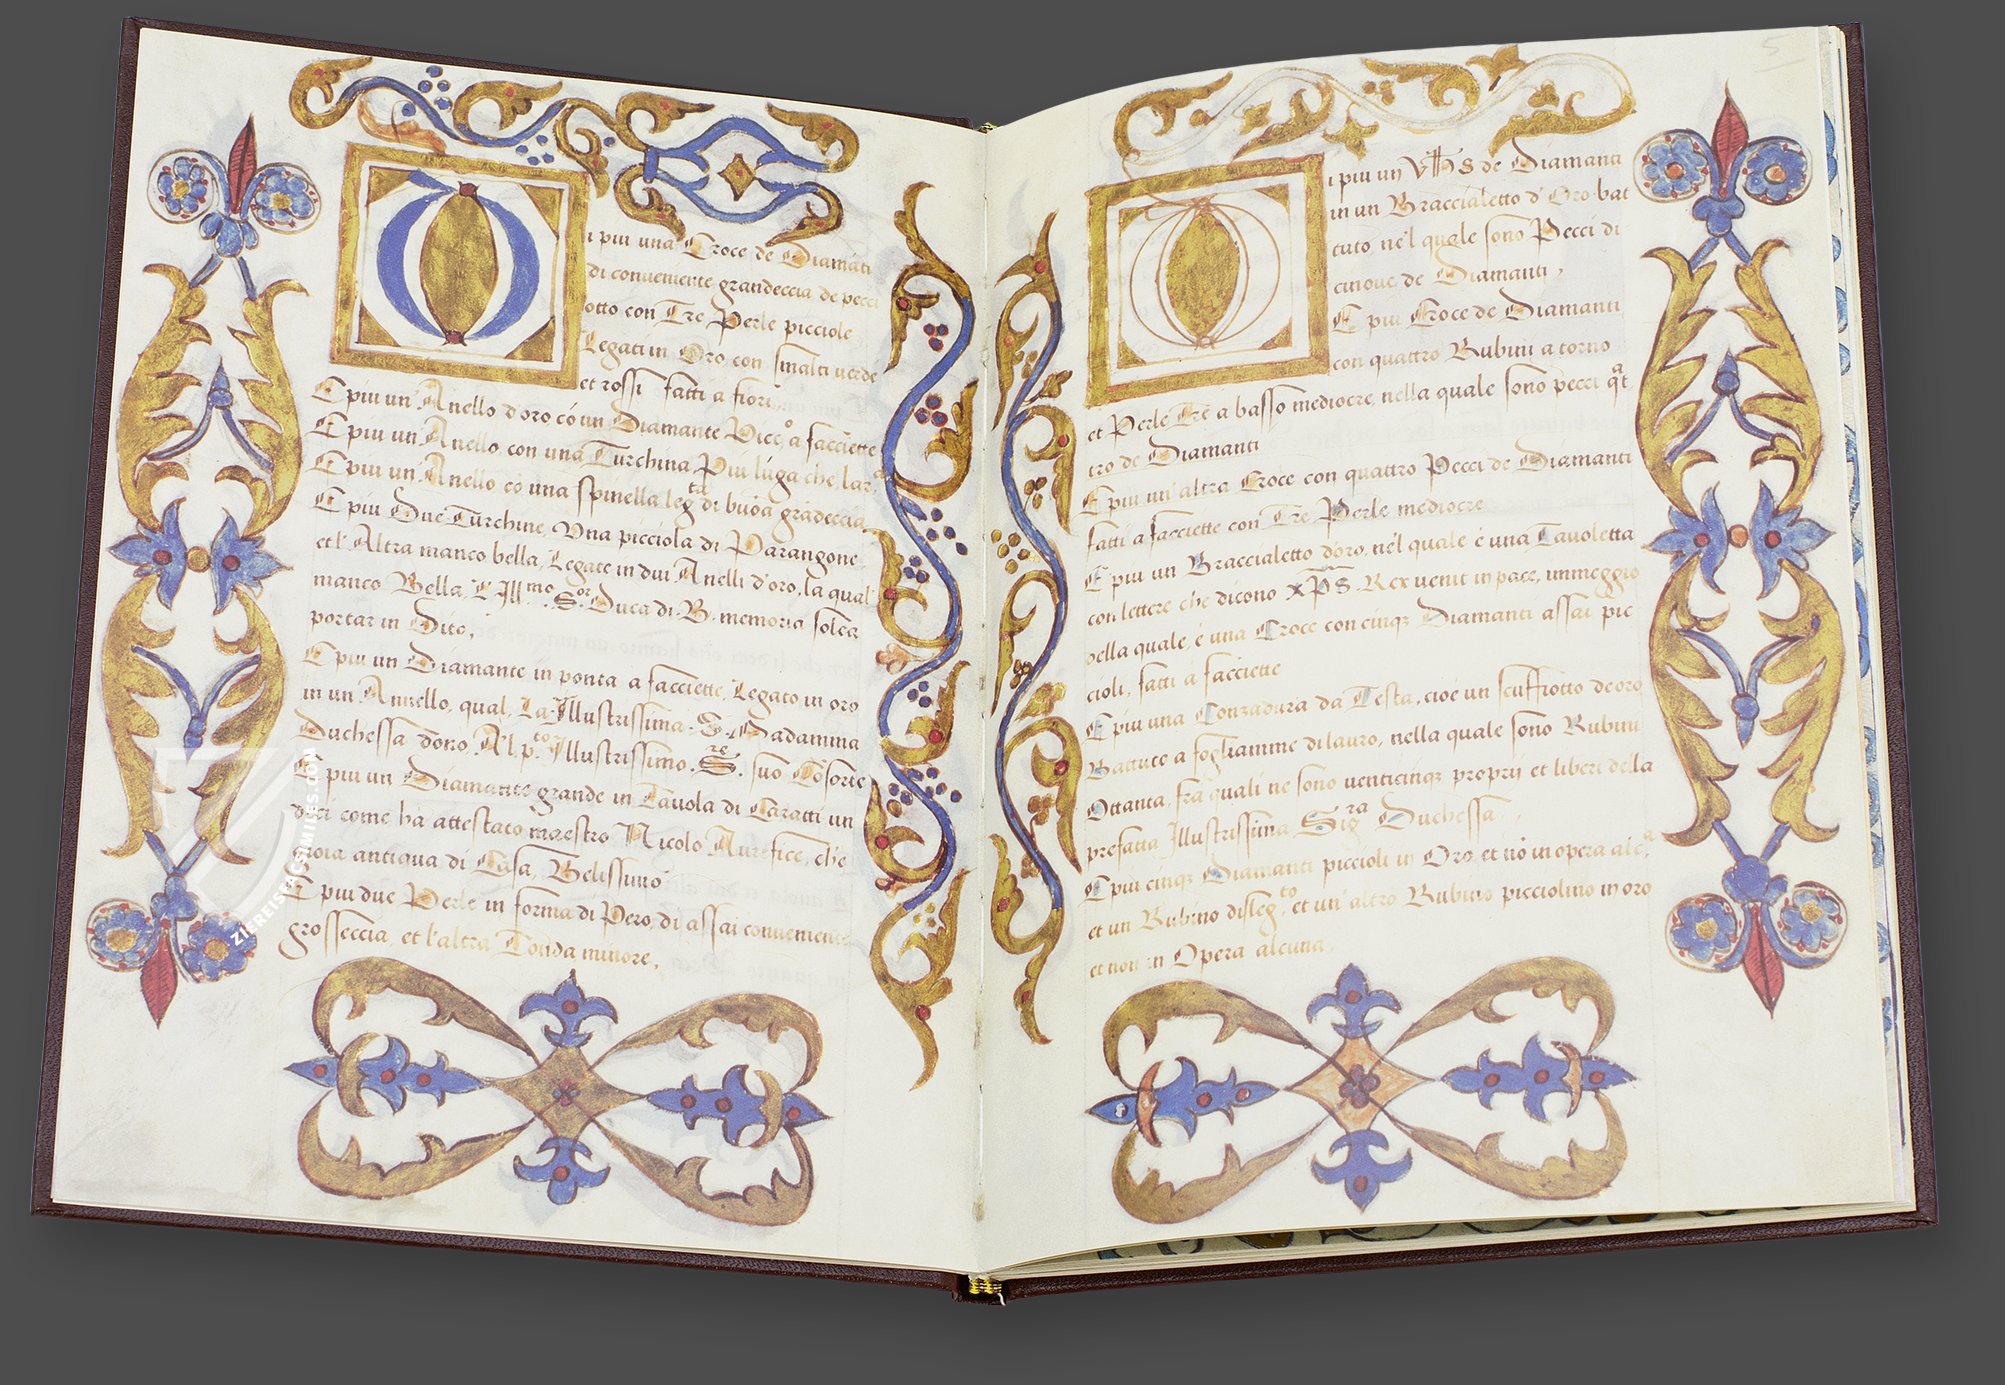 D
i piu una Croce de Diamāti
di conueniente grandeccia de pecci
otto con Tre Perle picciole,
Legati in Oro con smalti uerde
et rossi fatti a fiori.
E piu un' Anello d'oro cō un Diamante Picc.º a facciette
E piu un' Anello con una Turchina Piu lūga che lar.ª
E piu un Anello cō una spinella leg.ta di buōa grādeccia
E piu Due Turchine, Una picciola di Parangone
et l'Altra manco bella, Legate in dui Anelli d'oro, la qual
manco Bella, l'Ill.mo S.or Duca di B. memoria solea
portar in Dito,
E piu un Diamante in ponta a facciette, Legato in oro
in un Annello, qual, La Illustrissima S.ra Madamma
Duchessa dōno, Al p.to Illustrissimo. S.re suo Cōsorte
E piu un Diamante grande in Tauola di Caratti un
deci come ha attestato maestro Nicolo Aurefice, che
gioia antiqua di Casa, Belissimo
E piu due Perle in forma di Pero, di assai conueniente
grosseccia, et l'altra Tonda minore,
5
D
i piu un YHS de Diamanti
in un Braccialetto d'Oro bat
tuto, nel quale sono Pecci di
cinque de Diamanti,
E piu Croce de Diamanti
con quattro Rubini a torno
et Perle Tre a basso mediocre, nella quale sono pecci q.at
tro de Diamanti
E piu un' altra Croce con quattro Pecci de Diamanti
fatti a facciette con Tre Perle mediocre
E piu un Braccialetto d'oro, nel quale è una Tauoletta
con lettere che dicono XPS. Rex uenit in pace, in meggio
della quale, è una Croce con cinq; Diamanti assai pic
cioli, fatti a facciette
E piu una Conzadura da Testa, cioè un scuffiotto de oro
Battuto a fogliamme di lauro, nella quale sono Rubini
Ottanta, fra quali ne sono venticinq; proprij et liberi della
prefatta Illustrissima Sig.ra Duchessa.
E piu cinq; Diamanti piccioli in Oro, et nō in opera alc.ª
et un Rubino disleg.to, et un' altro Rubino picciolino in oro
et non in Opera alcuna.
ZIEREIS FACSIMILES.COM